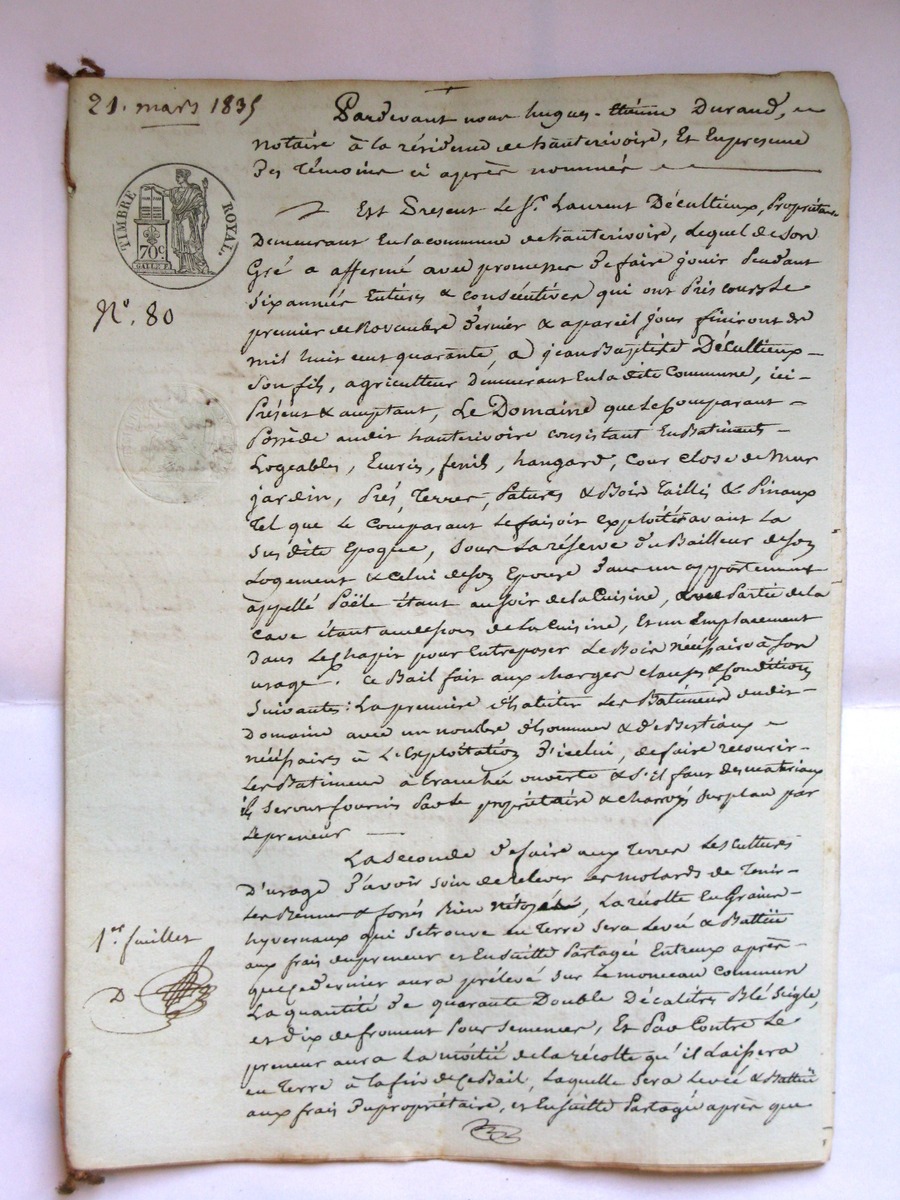 21. mars 1835
Pardevant nous hugues-étienne Durand,
notaire à la résidence de hauterivoire, Et En presence
Des Témoins ci après nommés
Est Present Le Sr. Laurent Décultieux, Propriétaire
Demeurant En la commune de hauterivoire, Lequel de son
Gré a affermé avec promesse De faire jouir Pendant
Six années Entières & consécutives qui ont Pris cours Le
premier de Novembre Dernier & a pareil jour finiront de
mil huit cent quarante, a jean Baptiste Décultieux
Son fils, agriculteur Demeurant En la dite Commune, ici
Présent & acceptant, Le Domaine que Le Comparant
Possède au dit hauterivoire consistant En Batiments
Logeables, Ecurie, fenil, hangard, Cour close de Mur
jardin, Prés, Terres, Patures & Bois Taillis & Pinaux
Tel que Le Comparant Le faisoit Exploiter avant La
Susdite Epoque, Sous La réserve Du Bailleur de son
Logement & Celui de son Epouse Dans un appartement
appellé Poële étant au soir de La Cuisine, avec Partie de la
Cave étant au dessous de La Cuisine, Et un Emplacement
Dans Le Chapit pour Entreposer Le Bois nécéssaire à Son
usage. Ce Bail fait aux charges clauses & Conditions
Suivantes: La première d'habiter Les Batiments du dit
Domaine avec un nombre d'hommes & De Bestiaux
nécéssaires à L'Exploitation D'icelui, de faire recouvrir
Les Batiments à tranchée ouverte & S'il faut des matériaux
ils Seront fournis Par le propriétaire & charroyés Sur place par
Le preneur
La Seconde De faire aux Terres Les Cultures
D'usage D'avoir Soin de relever Les molards de Tenir
Les Bennes & fossés Bien nétoyés, La récolte En Grains
hyvernaux qui Se trouve En Terre Sera Levée & Battüe
aux frais du preneur et Ensuite Partagée Entr'eux après
que Ce dernier aura prélevé Sur Le monceau Commun
La quantité De quarante Double Décalitres Blé Seigle,
et Dix de froment Pour Semences, Et Par Contre Le
preneur aura La moitié de la récolte qu'il Laissera
en Terre à La fin de Ce Bail, Laquelle Sera Levée & Battüe
aux frais Du propriétaire, et Ensuite Partagée après que
TIMBRE ROYAL.
70c
No. 80
1er. fuillet
D